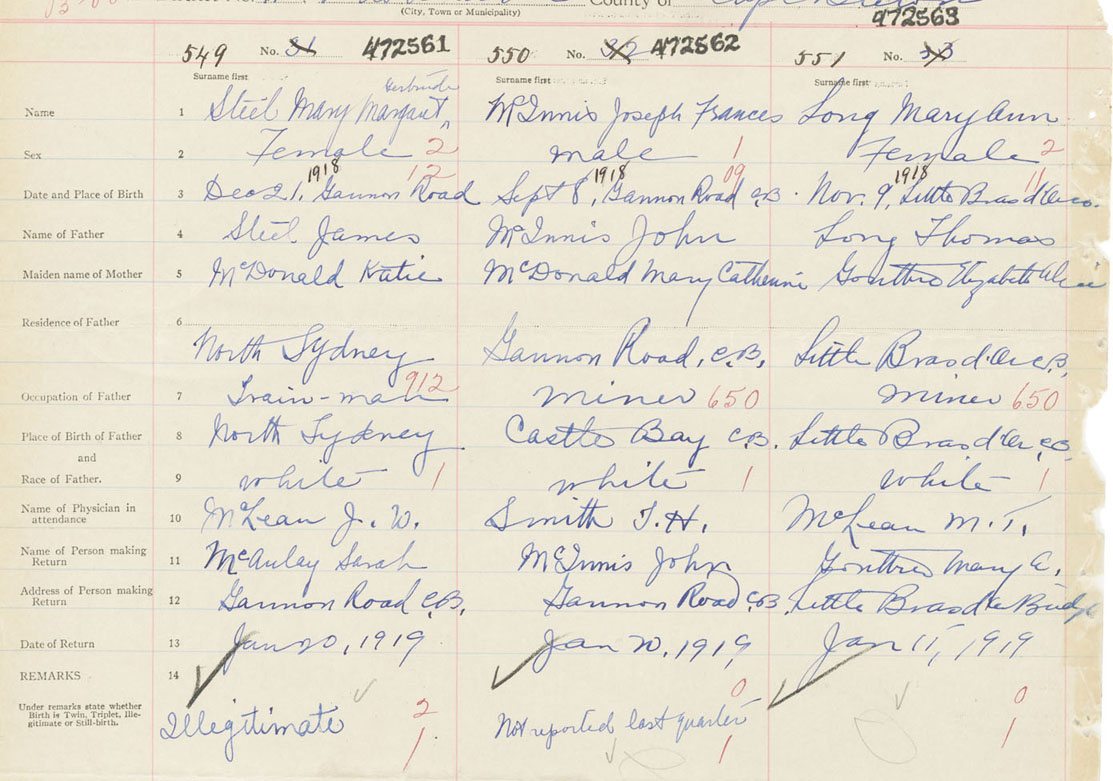 (City, Town or Municipality) County of
472563
549 No. 31 472561 550 No. 32 472562 551 No. 33
Surname first Surname first Surname first
Gertrude
Name 1 Steel Mary Margaret McInnis Joseph Frances Long Mary Ann
Sex 2 Female 2 male 1 Female 2
1918 12 1918 09 1918 11
Date and Place of Birth 3 Dec 21, Gannon Road Sept 8, Gannon Road C.B. Nov. 9, Little Bras d'Or
Name of Father 4 Steel James McInnis John Long Thomas
Maiden name of Mother 5 McDonald Katie McDonald Mary Catherine Gouthro Elizabeth
Residence of Father 6
North Sydney Gannon Road, C.B, Little Bras d'Or C.B,
912
Occupation of Father 7 Train-man miner 650 miner 650
Place of Birth of Father 8 North Sydney Castle Bay C.B. Little Bras d'Or C.B,
and
Race of Father. 9 white 1 white 1 white 1
Name of Physician in
attendance 10 McLean J. W. Smith T. H. McLean M. T.
Name of Person making
Return 11 McAulay Sarah McInnis John Gouthro Mary
Address of Person making
Return 12 Gannon Road C.B. Gannon Road C.B. Little Bras d'Or Bridge
Date of Return 13 Jan 20, 1919 Jan 20, 1919 Jan 11, 1919
REMARKS 14
Under remarks state whether
Birth is Twin, Triplet, Ille-
gitimate or Still-birth.
0 0
Illegitimate 2 Not reported last quarter
1 1 1